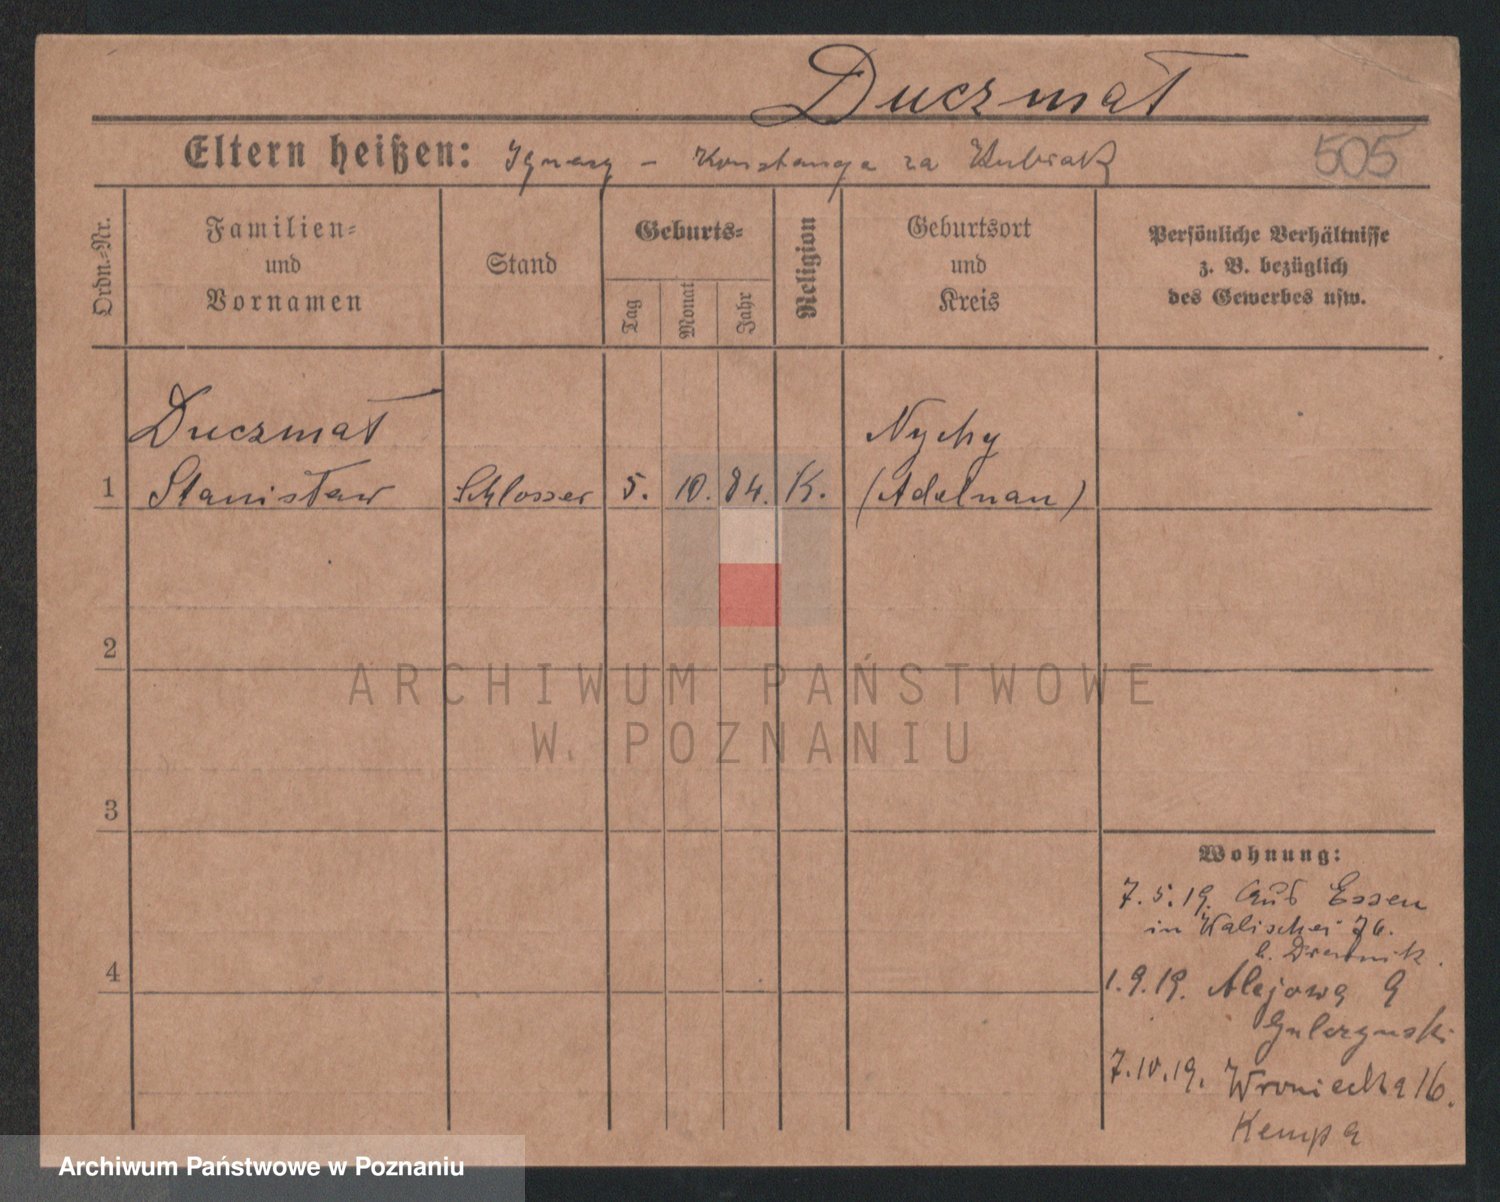 Duczmał
Eltern heißen: Ignacy - Konstancya za Kubiak
505
Ordn.-Nr.
Familien-
und
Vornamen
Stand
Geburts-
Tag
Monat
Jahr
Religion
Geburtsort
und
Kreis
Persönliche Verhältnisse
z. B. bezüglich
des Gewerbes usw.
Duczmał
Nychy
1 Stanisław Schlosser 5. 10. 84. K. (Adelnau)
2
ARCHIWUM PAŃSTWOWE
W POZNANIU
3
Wohnung:
7.5.19. Aus Essen
in Walischei 76.
b.
4
1.9.19. Alejowa 9
7.10.19. Wroniecka 16.
Kempa
Archiwum Państwowe w Poznaniu